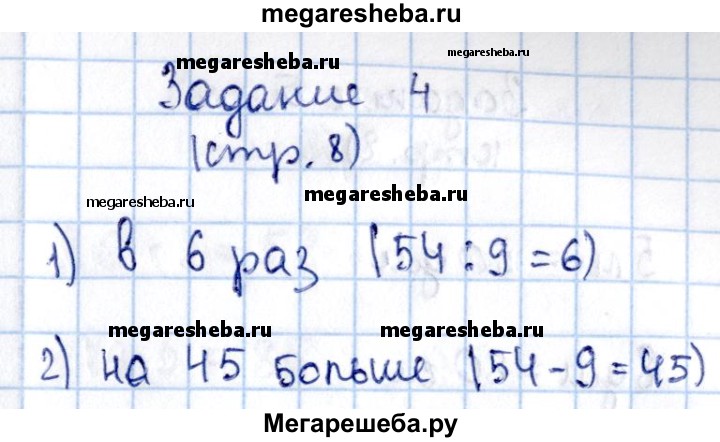 megaresheba.ru
megaresheba.ru megaresheba.ru
Задание 4
(стр. 8)
megaresheba.ru megaresheba.ru
1) в 6 раз (54 : 9 = 6)
megaresheba.ru megaresheba.ru
2) на 45 больше (54 - 9 = 45)
Мегарешеба.ру